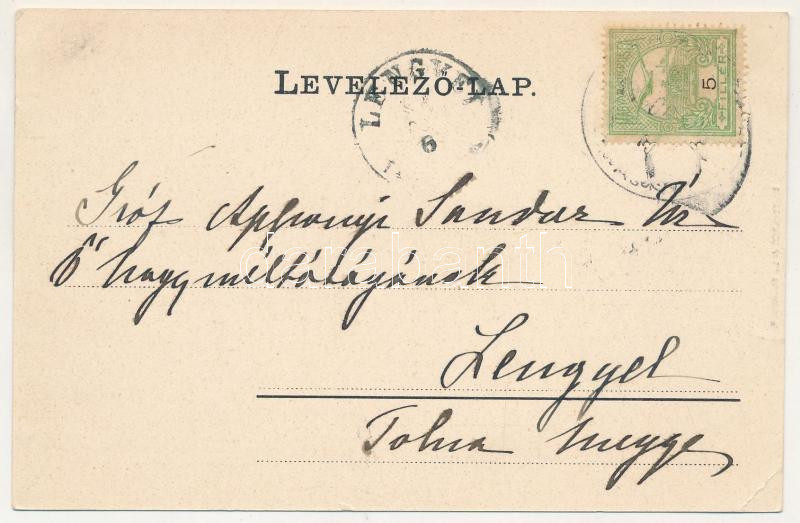 LEVELEZŐ-LAP.
LENGYEL
6
5
FILLÉR
Gróf Aphonyi Sandor Úr
Ő nagyméltóságának
darabanth
Lengyel
Tolna megye